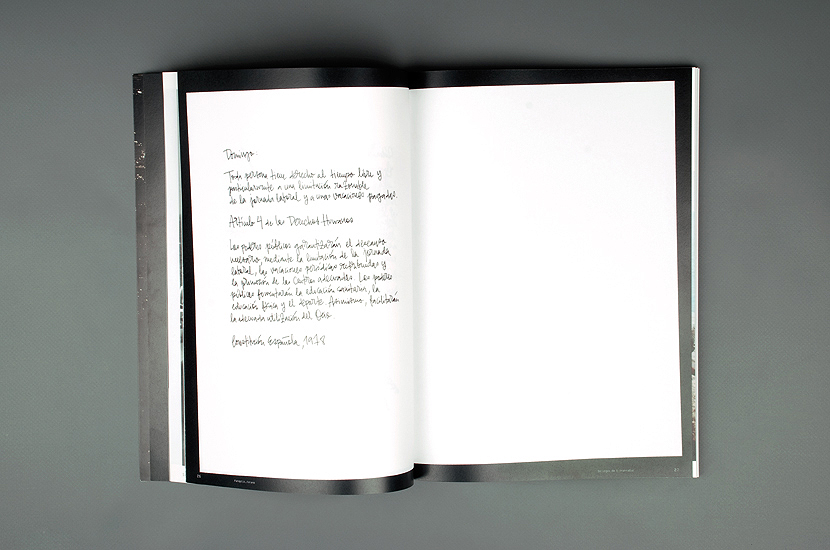 Domingo.
Toda persona tiene derecho al tiempo libre y
particularmente a una limitación razonable
de la jornada laboral y a unas vacaciones pagadas.
Artículo 4 de los Derechos Humanos
Los poderes públicos garantizarán el descanso
necesario, mediante la limitación de la jornada
laboral, las vacaciones periódicas retribuidas y
la promoción de los centros adecuados. Los poderes
públicos fomentarán la educación sanitaria, la
educación física y el deporte. Asimismo, facilitarán
la adecuada utilización del Ocio
Constitución Española, 1978